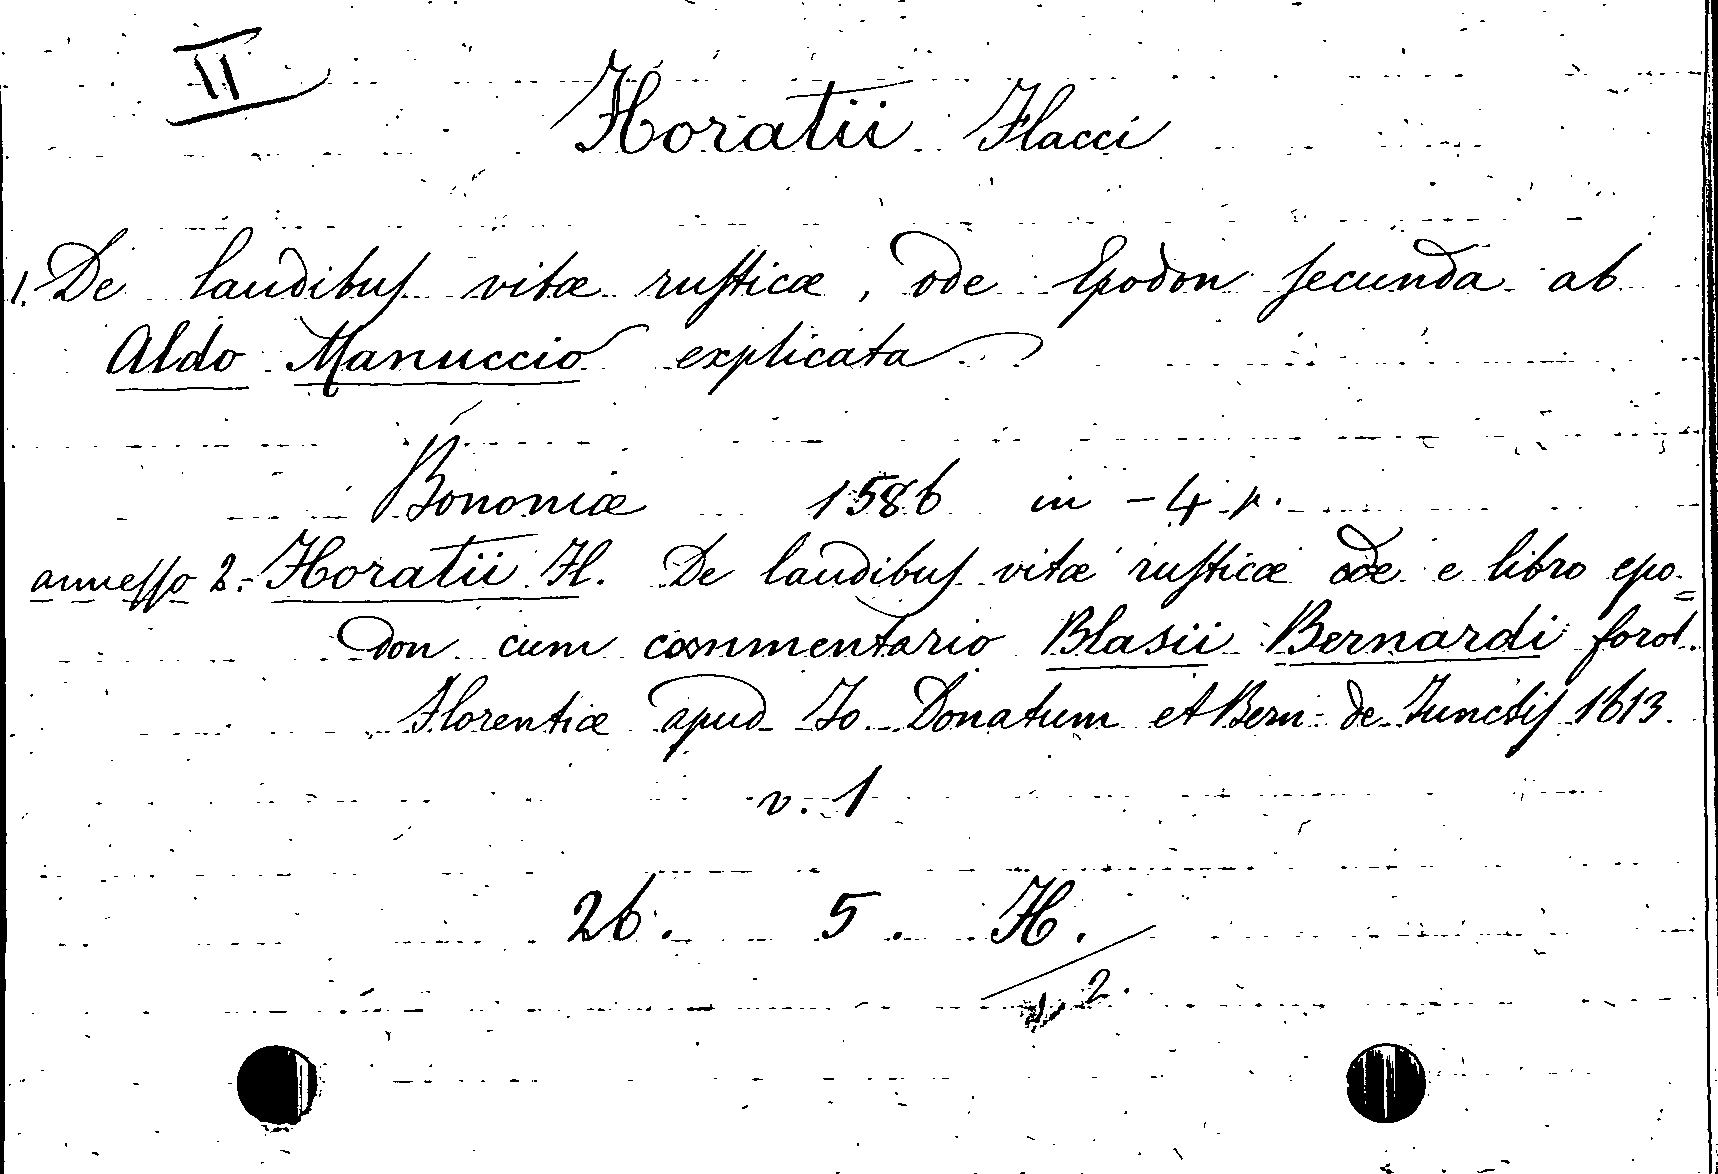 II
Horatii Flacci
1. De laudibus vitæ rusticæ, ode Epodon secunda ab
Aldo Manuccio explicata
Bononiæ 1586 in-4 p.
annesso 2.- Horatii Fl. De laudibus vitæ rusticæ ode e libro epo=
don cum commentario Blasii Bernardi forol.
Florentiæ apud Jo. Donatum et Bern. de Junctis 1613.
v. 1
26. 5. H.
2.